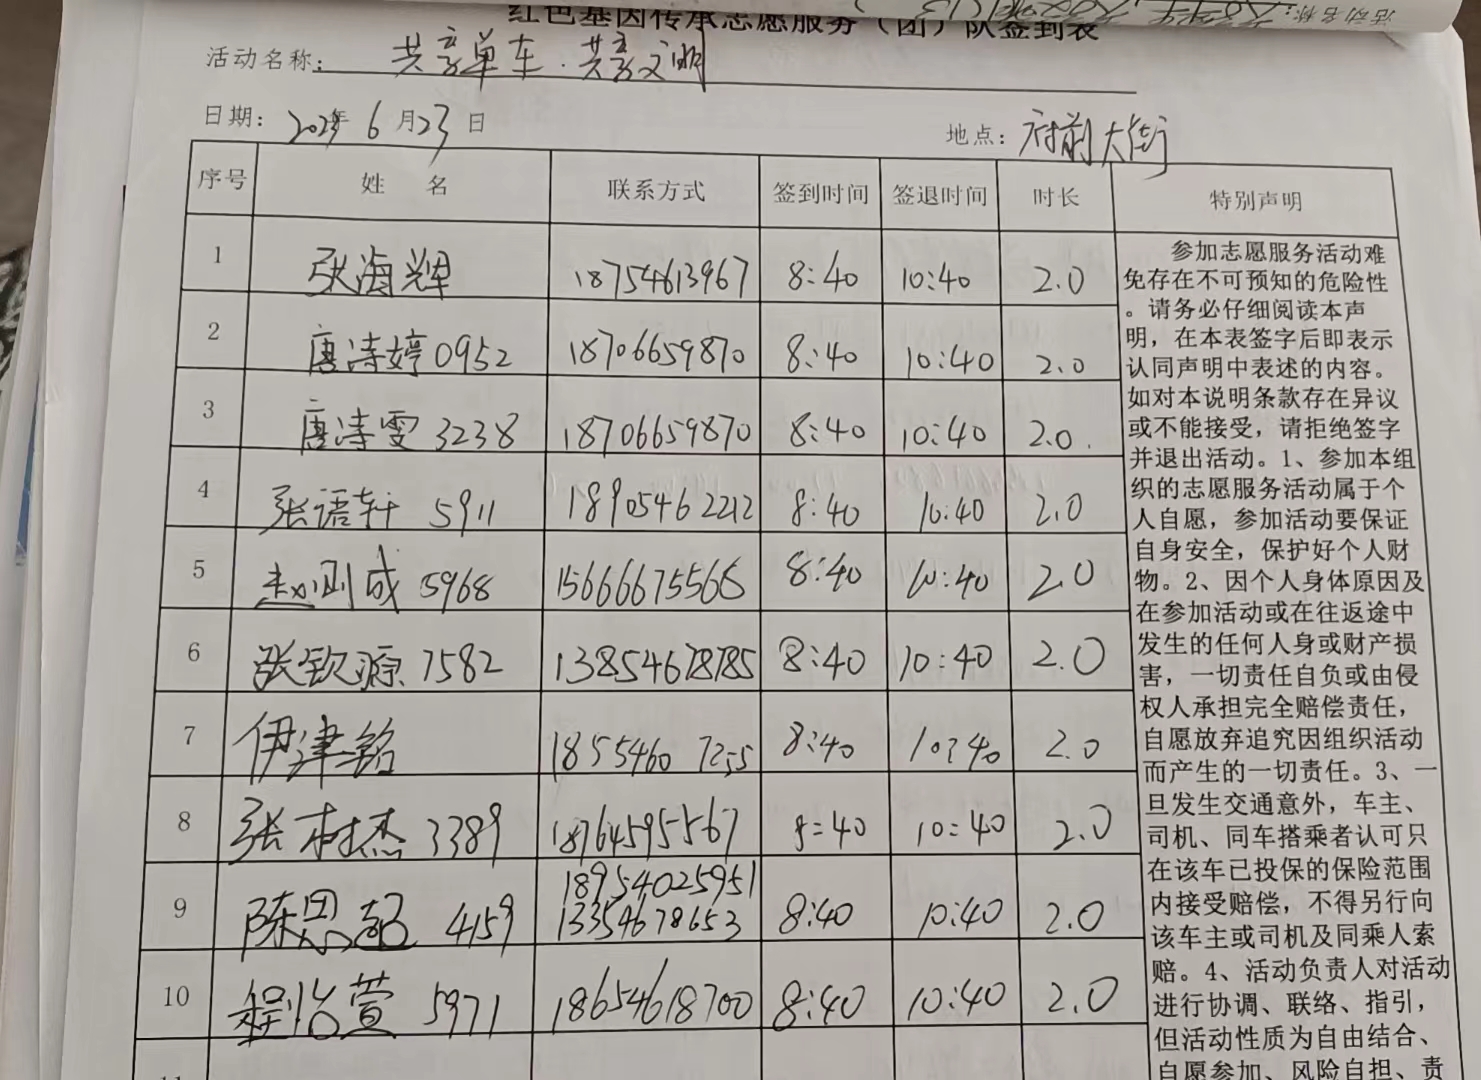 红色基因传承志愿服务（团）队签到表
活动名称： 共享单车·共享文明
日期： 2023年 6 月 23 日
地点：府前大街
序号 姓 名 联系方式 签到时间 签退时间 时长 特别声明
1 张海辉 18754613967 8:40 10:40 2.0
2 唐诗婷 0952 18706659870 8:40 10:40 2.0
3 唐诗雯 3238 18706659870 8:40 10:40 2.0.
4 张语轩 5911 18905462212 8:40 10:40 2.0
5 赵则成 5968 15666675565 8:40 10:40 2.0
6 张钦源 7582 13854678785 8:40 10:40 2.0
7 伊津铭 18554607255 8:40 10:40 2.0
8 张树杰 3389 18764595567 8:40 10:40 2.0
9 陈思 4159 18954025951 8:40 10:40 2.0
13354678653
10 程怡萱 5971 18654618700 8:40 10:40 2.0
参加志愿服务活动难
免存在不可预知的危险性
。请务必仔细阅读本声
明，在本表签字后即表示
认同声明中表述的内容。
如对本说明条款存在异议
或不能接受，请拒绝签字
并退出活动。1、参加本组
织的志愿服务活动属于个
人自愿，参加活动要保证
自身安全，保护好个人财
物。2、因个人身体原因及
在参加活动或在往返途中
发生的任何人身或财产损
害，一切责任自负或由侵
权人承担完全赔偿责任，
自愿放弃追究因组织活动
而产生的一切责任。3、一
旦发生交通意外，车主、
司机、同车搭乘者认可只
在该车已投保的保险范围
内接受赔偿，不得另行向
该车主或司机及同乘人索
赔。4、活动负责人对活动
进行协调、联络、指引，
但活动性质为自由结合、
自愿参加、风险自担、责
11
活动名称：